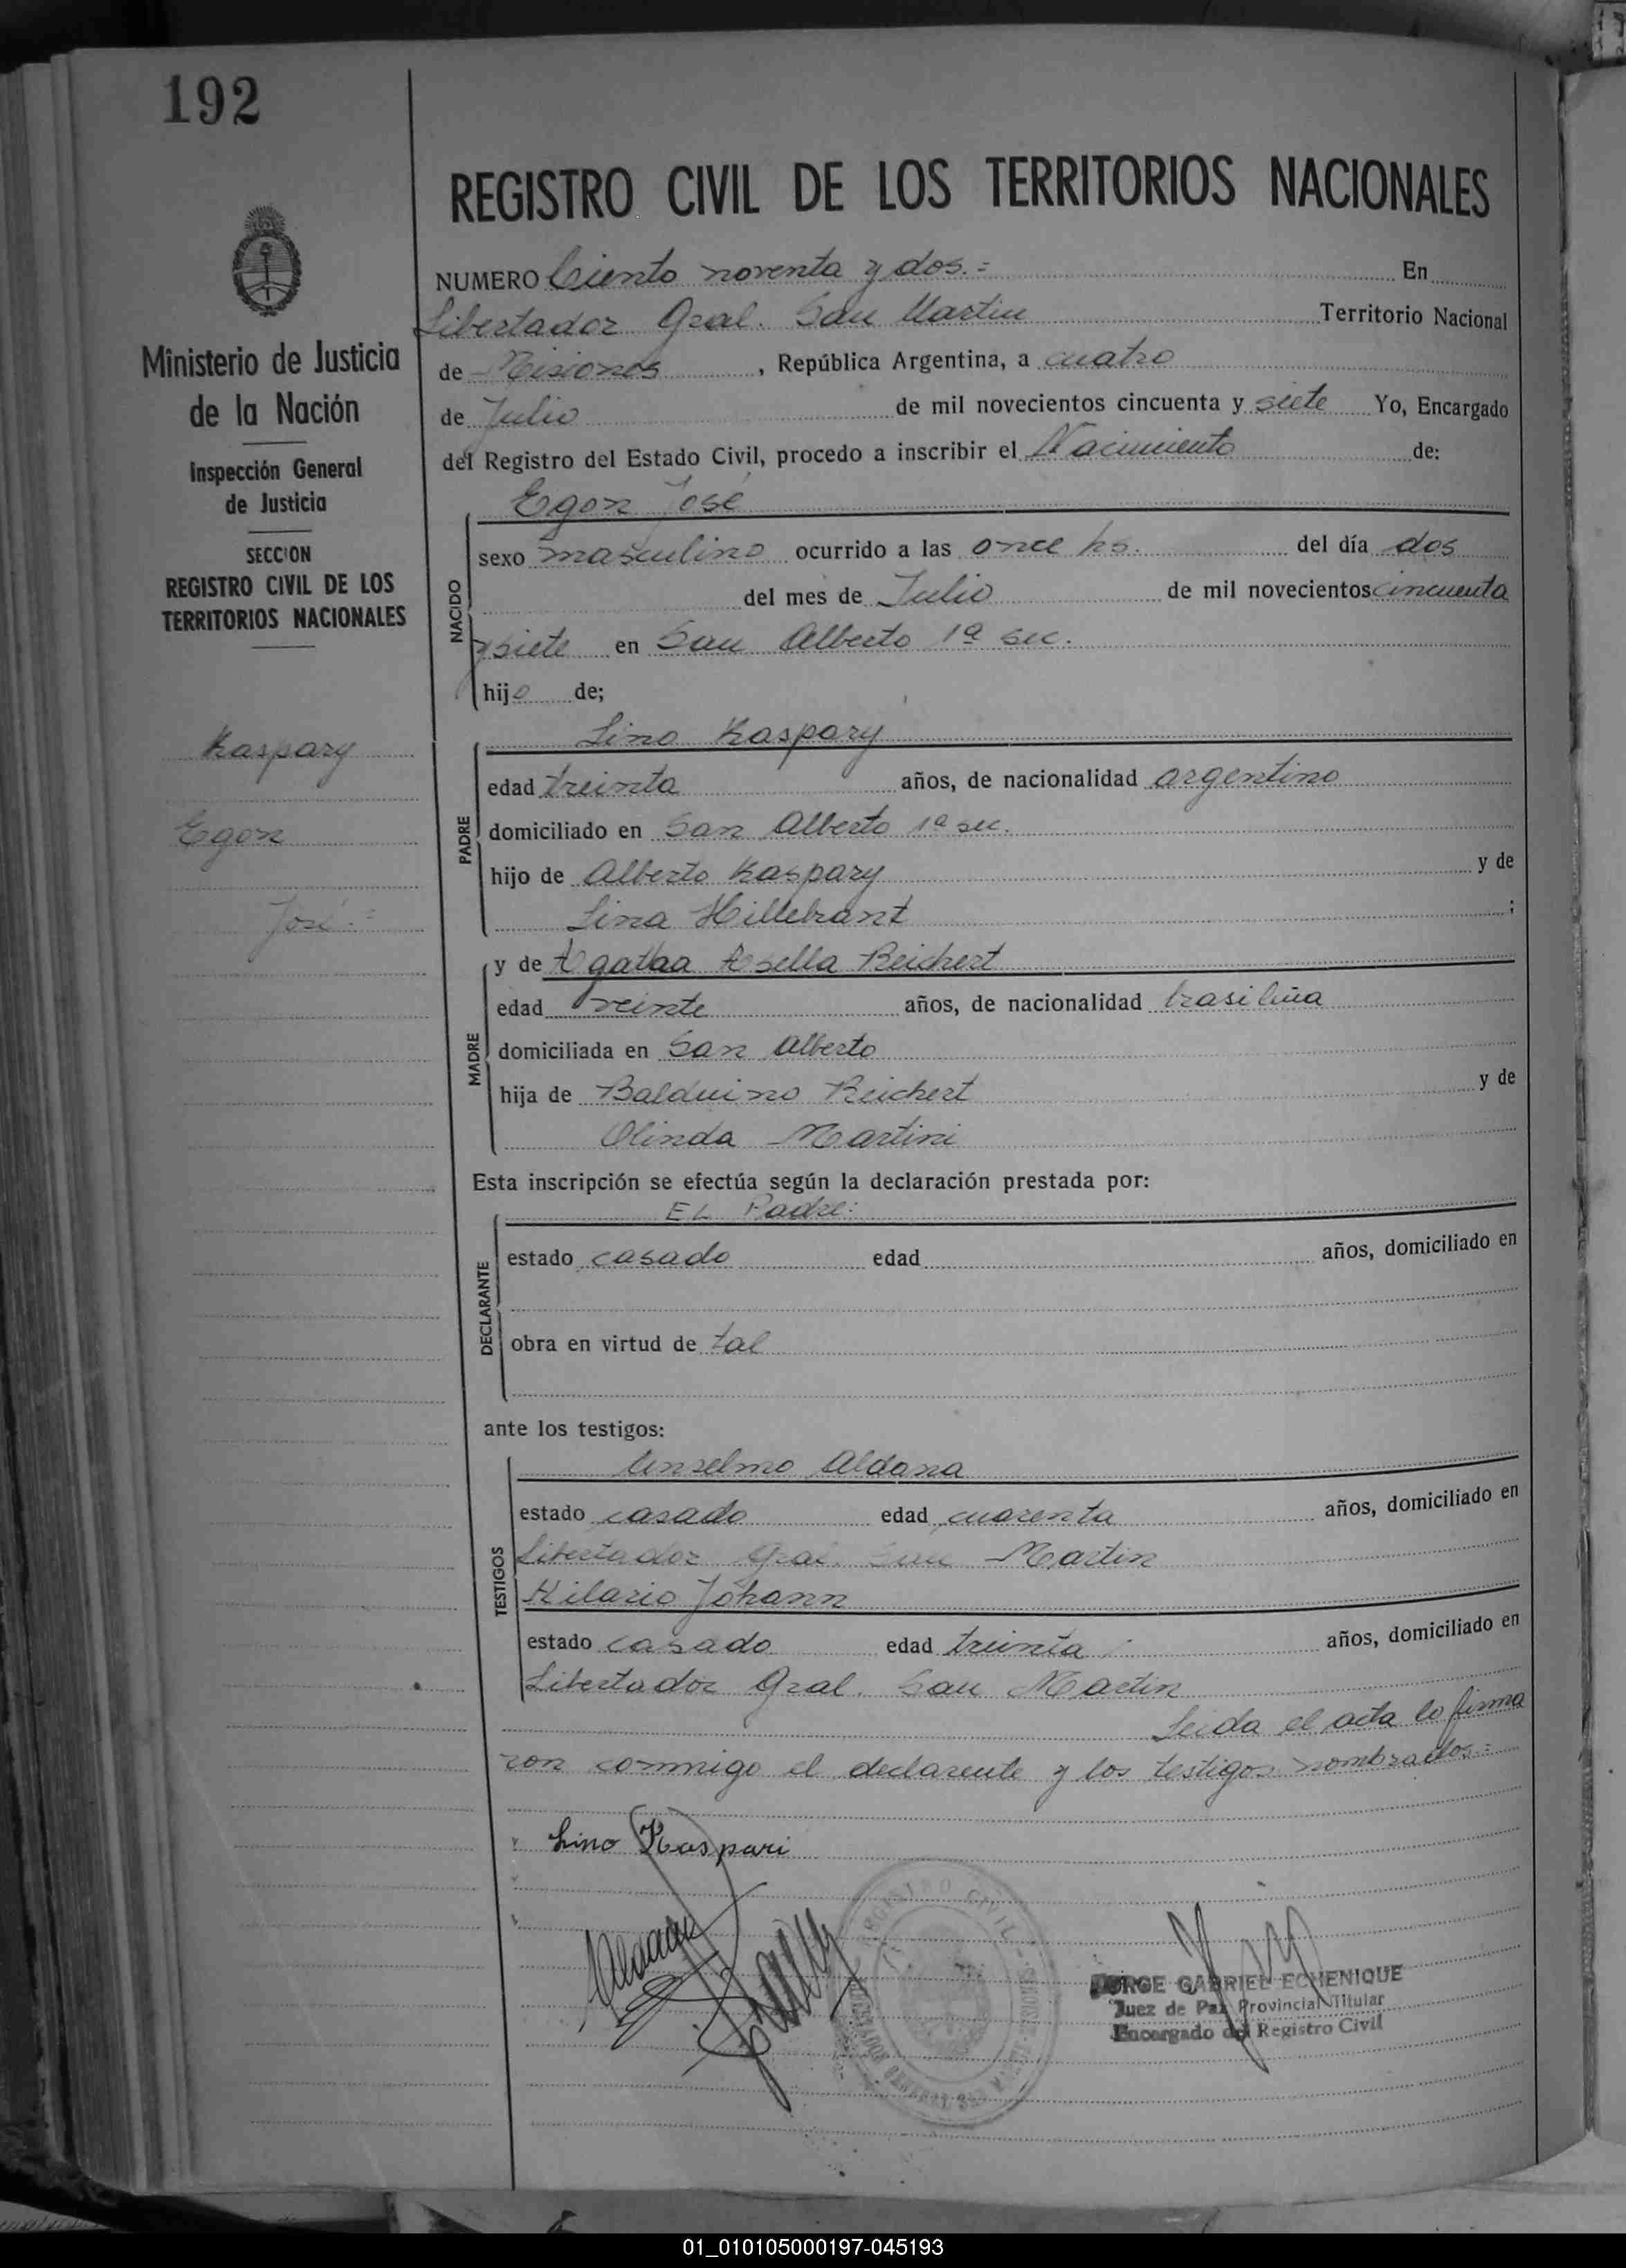 192
REGISTRO CIVIL DE LOS TERRITORIOS NACIONALES
Ministerio de Justicia
de la Nación
Inspección General
de Justicia
SECCION
REGISTRO CIVIL DE LOS
TERRITORIOS NACIONALES
Kaspary
Egon
José.=
NUMERO Ciento noventa y dos.= En
Libertador Gral. San Martin Territorio Nacional
de Misiones, República Argentina, a cuatro
de Julio de mil novecientos cincuenta y siete Yo, Encargado
del Registro del Estado Civil, procedo a inscribir el Nacimiento de:
Egon José
NACIDO
sexo masculino ocurrido a las once hs. del día dos
del mes de Julio de mil novecientos cincuenta
y siete en San Alberto 1ª sec.
hijo de;
Lino Kaspary
PADRE
edad treinta años, de nacionalidad argentino
domiciliado en San Alberto 1ª sec.
hijo de Alberto Kaspary y de
Lina Hillebrant ;
y de Reichert
MADRE
edad veinte años, de nacionalidad brasileña
domiciliada en San Alberto
hija de Balduino Reichert y de
Olinda Martini
Esta inscripción se efectúa según la declaración prestada por:
EL Padre:
DECLARANTE
estado casado edad años, domiciliado en
obra en virtud de tal
ante los testigos:
Anselmo Aldana
TESTIGOS
estado casado edad cuarenta años, domiciliado en
Libertador Gral. San Martin
Hilario Johann
estado casado edad treinta años, domiciliado en
Libertador Gral. San Martin
Leida el acta la firma
ron conmigo el declarente y los testigos nombrados.=
Lino Kaspari
Aldana
REGISTRO CIVIL
JORGE GABRIEL ECHENIQUE
Juez de Paz Provincial Titular
Encargado del Registro Civil
01_010105000197-045193